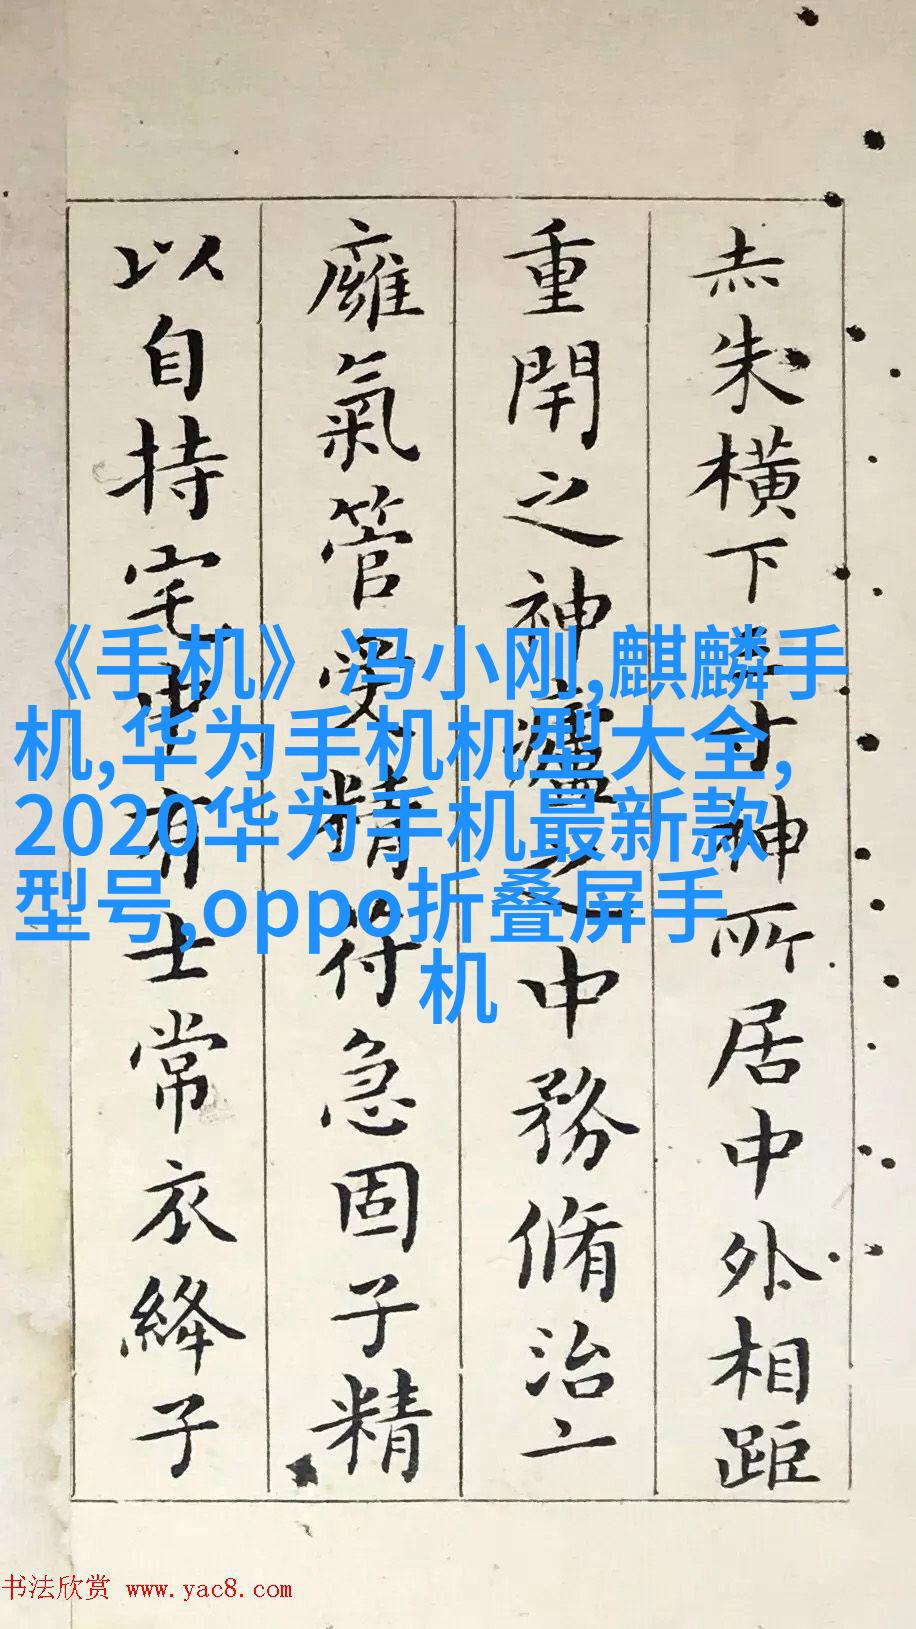 赤朱橫下三寸神所居中外相距
重閇之神廬之中務脩治亠
廱氣管受精符急固子精
以自持宅中有士常衣絳子
《手机》冯小刚,麒麟手
机,华为手机机型大全,
2020华为手机最新款
型号,oppo折叠屏手
机
书法欣赏 www.yac8.com